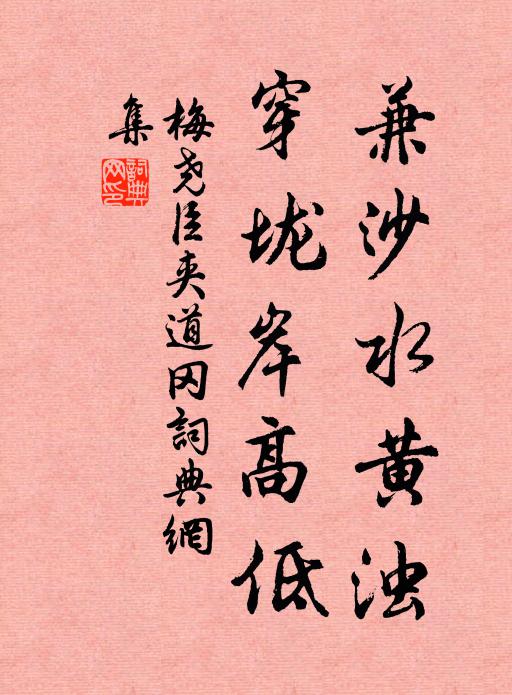 兼沙水黄浊
穿垅岸高低
梅尧臣夹道冈詞典網
集
詞典
网印